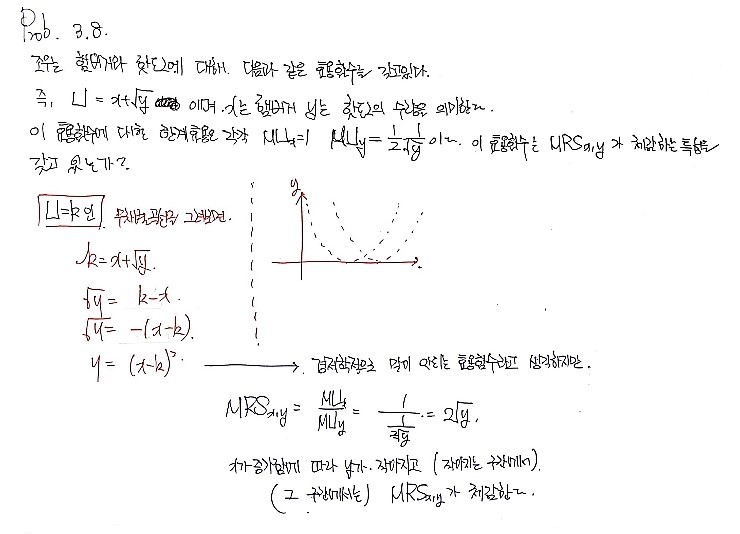 Prob. 3.8.
조우는 햄버거와 핫도그에 대해 다음과 같은 효용함수를 갖고있다.
즉, U = x+√y 이며, x는 햄버거 y는 핫도그의 수량을 의미한다.
이 효용함수에 대한 한계효용은 각각 MUx=1 MUy = 1/2 1/√y 이다. 이 효용함수는 MRSx,y 가 체감하는 특성을
갖고 있는가?
U=k인 무차별곡선을 그려보면.
y
k = x+√y.
√y = k-x.
√y = -(x-k).
y = (x-k)². → 경제학적으로 말이 안되는 효용함수라고 생각하지만.
MRSx,y = MUx/MUy = 1/(1/2√y) = 2√y.
x가 증가함에 따라 y가 작아지고 (작아지는 구간에서).
(그 구간에서는) MRSx,y가 체감한다.